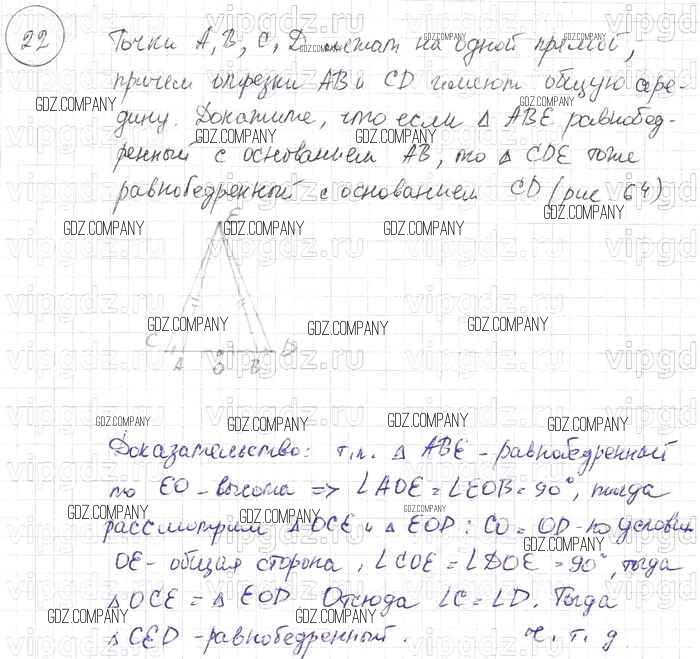 22
Точки A, B, C, D лежат на одной прямой,
причем отрезки AB и CD имеют общую сере-
дину. Докажите, что если △ ABE равнобед-
ренный с основанием AB, то △ CDE тоже
равнобедренный с основанием CD (рис 64)
E
C A O B D
Доказательство: т.к. △ ABE - равнобедренный
то EO - высота => ∠AOE = ∠EOB = 90°, тогда
рассмотрим △ OCE и △ EOD : CO = OD - по условию
OE - общая сторона, ∠COE = ∠DOE = 90°, тогда
△ OCE = △ EOD. Отсюда ∠C = ∠D. Тогда
△ CED - равнобедренный. ч. т. д.
GDZ.COMPANY
vipgdz.ru